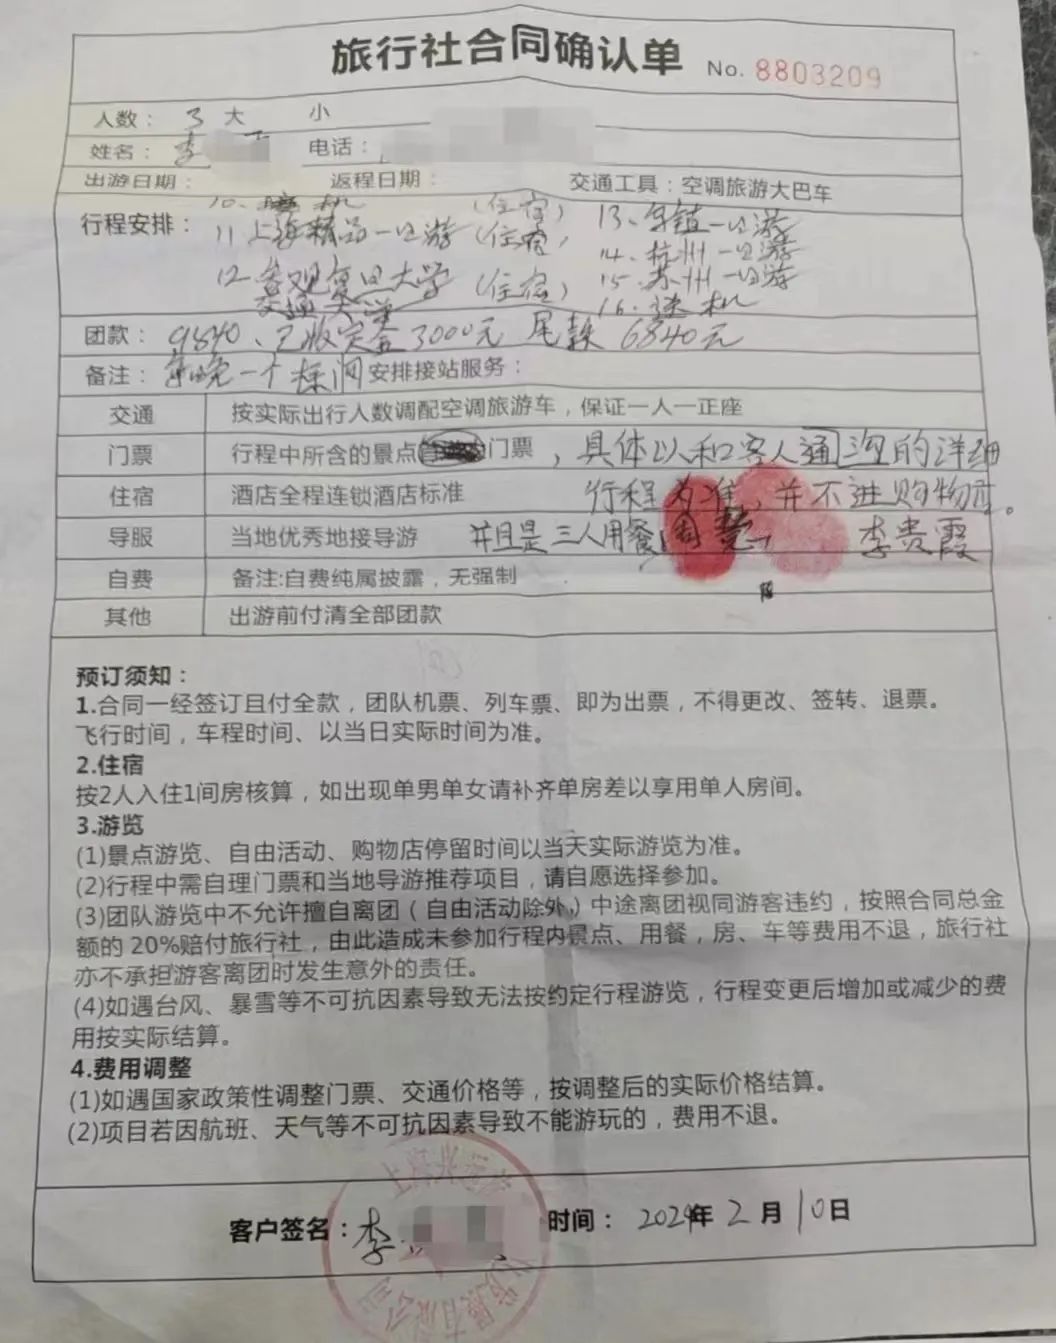 旅行社合同确认单 No. 8803209
人数： 3 大 小
姓名：李 电话：
出游日期： 返程日期： 交通工具：空调旅游大巴车
行程安排： 10、接机 （住宿） 13、乌镇一日游
11 上海精品一日游 （住宿） 14、杭州一日游
12、参观复旦大学 （住宿） 15、苏州一日游
交通大学 16、送机
团款： 9840、已收定金3000元 尾款 6840元
备注： 每晚一个标间 安排接站服务：
交通 按实际出行人数调配空调旅游车，保证一人一正座
门票 行程中所含的景点 门票 ，具体以和客人沟通的详细
住宿 酒店全程连锁酒店标准 行程为准，并不进购物店。
导服 当地优秀地接导游 并且是三人用餐 李贵霞
自费 备注:自费纯属披露，无强制
其他 出游前付清全部团款
预订须知：
1.合同一经签订且付全款，团队机票、列车票、即为出票，不得更改、签转、退票。
飞行时间，车程时间、以当日实际时间为准。
2.住宿
按2人入住1间房核算，如出现单男单女请补齐单房差以享用单人房间。
3.游览
(1)景点游览、自由活动、购物店停留时间以当天实际游览为准。
(2)行程中需自理门票和当地导游推荐项目，请自愿选择参加。
(3)团队游览中不允许擅自离团（自由活动除外）中途离团视同游客违约，按照合同总金
额的 20%赔付旅行社，由此造成未参加行程内景点、用餐，房、车等费用不退，旅行社
亦不承担游客离团时发生意外的责任。
(4)如遇台风、暴雪等不可抗因素导致无法按约定行程游览，行程变更后增加或减少的费
用按实际结算。
4.费用调整
(1)如遇国家政策性调整门票、交通价格等，按调整后的实际价格结算。
(2)项目若因航班、天气等不可抗因素导致不能游玩的，费用不退。
客户签名：李 时间： 2024年 2 月 10 日